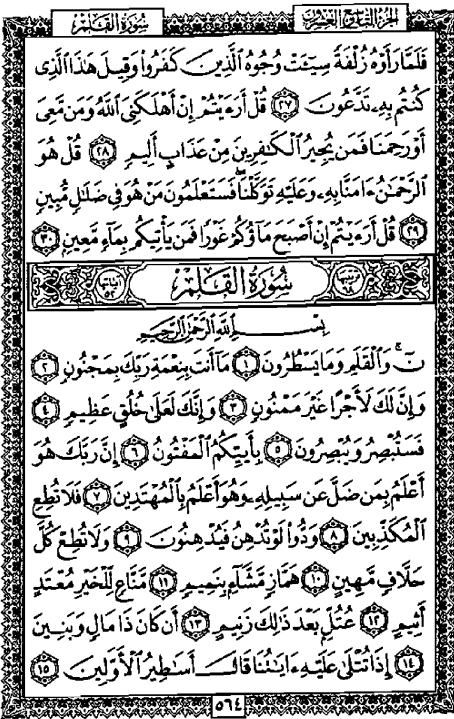 سُورَةُ القَلَمِ
الجزء التاسع والعشرون
فَلَمَّا رَأَوْهُ زُلْفَةً سِيٓـَٔتْ وُجُوهُ ٱلَّذِينَ كَفَرُوا۟ وَقِيلَ هَٰذَا ٱلَّذِى
كُنتُم بِهِۦ تَدَّعُونَ ٢٧ قُلْ أَرَءَيْتُمْ إِنْ أَهْلَكَنِىَ ٱللَّهُ وَمَن مَّعِىَ
أَوْ رَحِمَنَا فَمَن يُجِيرُ ٱلْكَٰفِرِينَ مِنْ عَذَابٍ أَلِيمٍ ٢٨ قُلْ هُوَ
ٱلرَّحْمَٰنُ ءَامَنَّا بِهِۦ وَعَلَيْهِ تَوَكَّلْنَا ۖ فَسَتَعْلَمُونَ مَنْ هُوَ فِى ضَلَٰلٍ مُّبِينٍ
٢٩ قُلْ أَرَءَيْتُمْ إِنْ أَصْبَحَ مَآؤُكُمْ غَوْرًا فَمَن يَأْتِيكُم بِمَآءٍ مَّعِينٍۭ ٣٠
سُورَةُ القَلَمِ
آياتها ٥٢
بِسْمِ ٱللَّهِ ٱلرَّحْمَٰنِ ٱلرَّحِيمِ
نٓ ۚ وَٱلْقَلَمِ وَمَا يَسْطُرُونَ ١ مَآ أَنتَ بِنِعْمَةِ رَبِّكَ بِمَجْنُونٍ ٢
وَإِنَّ لَكَ لَأَجْرًا غَيْرَ مَمْنُونٍ ٣ وَإِنَّكَ لَعَلَىٰ خُلُقٍ عَظِيمٍ ٤
فَسَتُبْصِرُ وَيُبْصِرُونَ ٥ بِأَييِّكُمُ ٱلْمَفْتُونُ ٦ إِنَّ رَبَّكَ هُوَ
أَعْلَمُ بِمَن ضَلَّ عَن سَبِيلِهِۦ وَهُوَ أَعْلَمُ بِٱلْمُهْتَدِينَ ٧ فَلَا تُطِعِ
ٱلْمُكَذِّبِينَ ٨ وَدُّوا۟ لَوْ تُدْهِنُ فَيُدْهِنُونَ ٩ وَلَا تُطِعْ كُلَّ
حَلَّافٍ مَّهِينٍ ١٠ هَمَّازٍ مَّشَّآءٍۭ بِنَمِيمٍ ١١ مَّنَّاعٍ لِّلْخَيْرِ مُعْتَدٍ
أَثِيمٍ ١٢ عُتُلٍّۭ بَعْدَ ذَٰلِكَ زَنِيمٍ ١٣ أَن كَانَ ذَا مَالٍ وَبَنِينَ
١٤ إِذَا تُتْلَىٰ عَلَيْهِ ءَايَٰتُنَا قَالَ أَسَٰطِيرُ ٱلْأَوَّلِينَ ١٥
٥٦٤